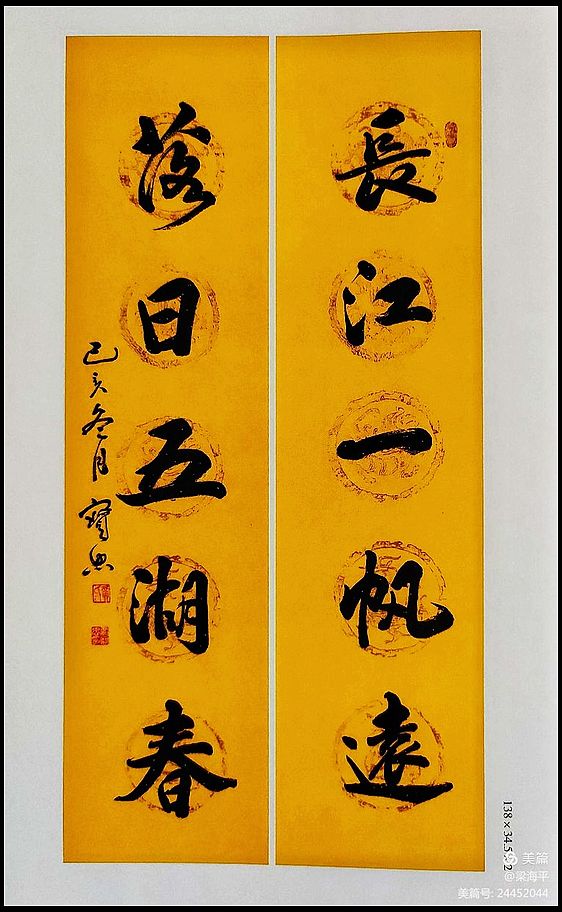 長江一帆遠
落日五湖春
己亥冬月 寶忠
138×34.5×2
美篇
@梁海平
美篇号: 24452044